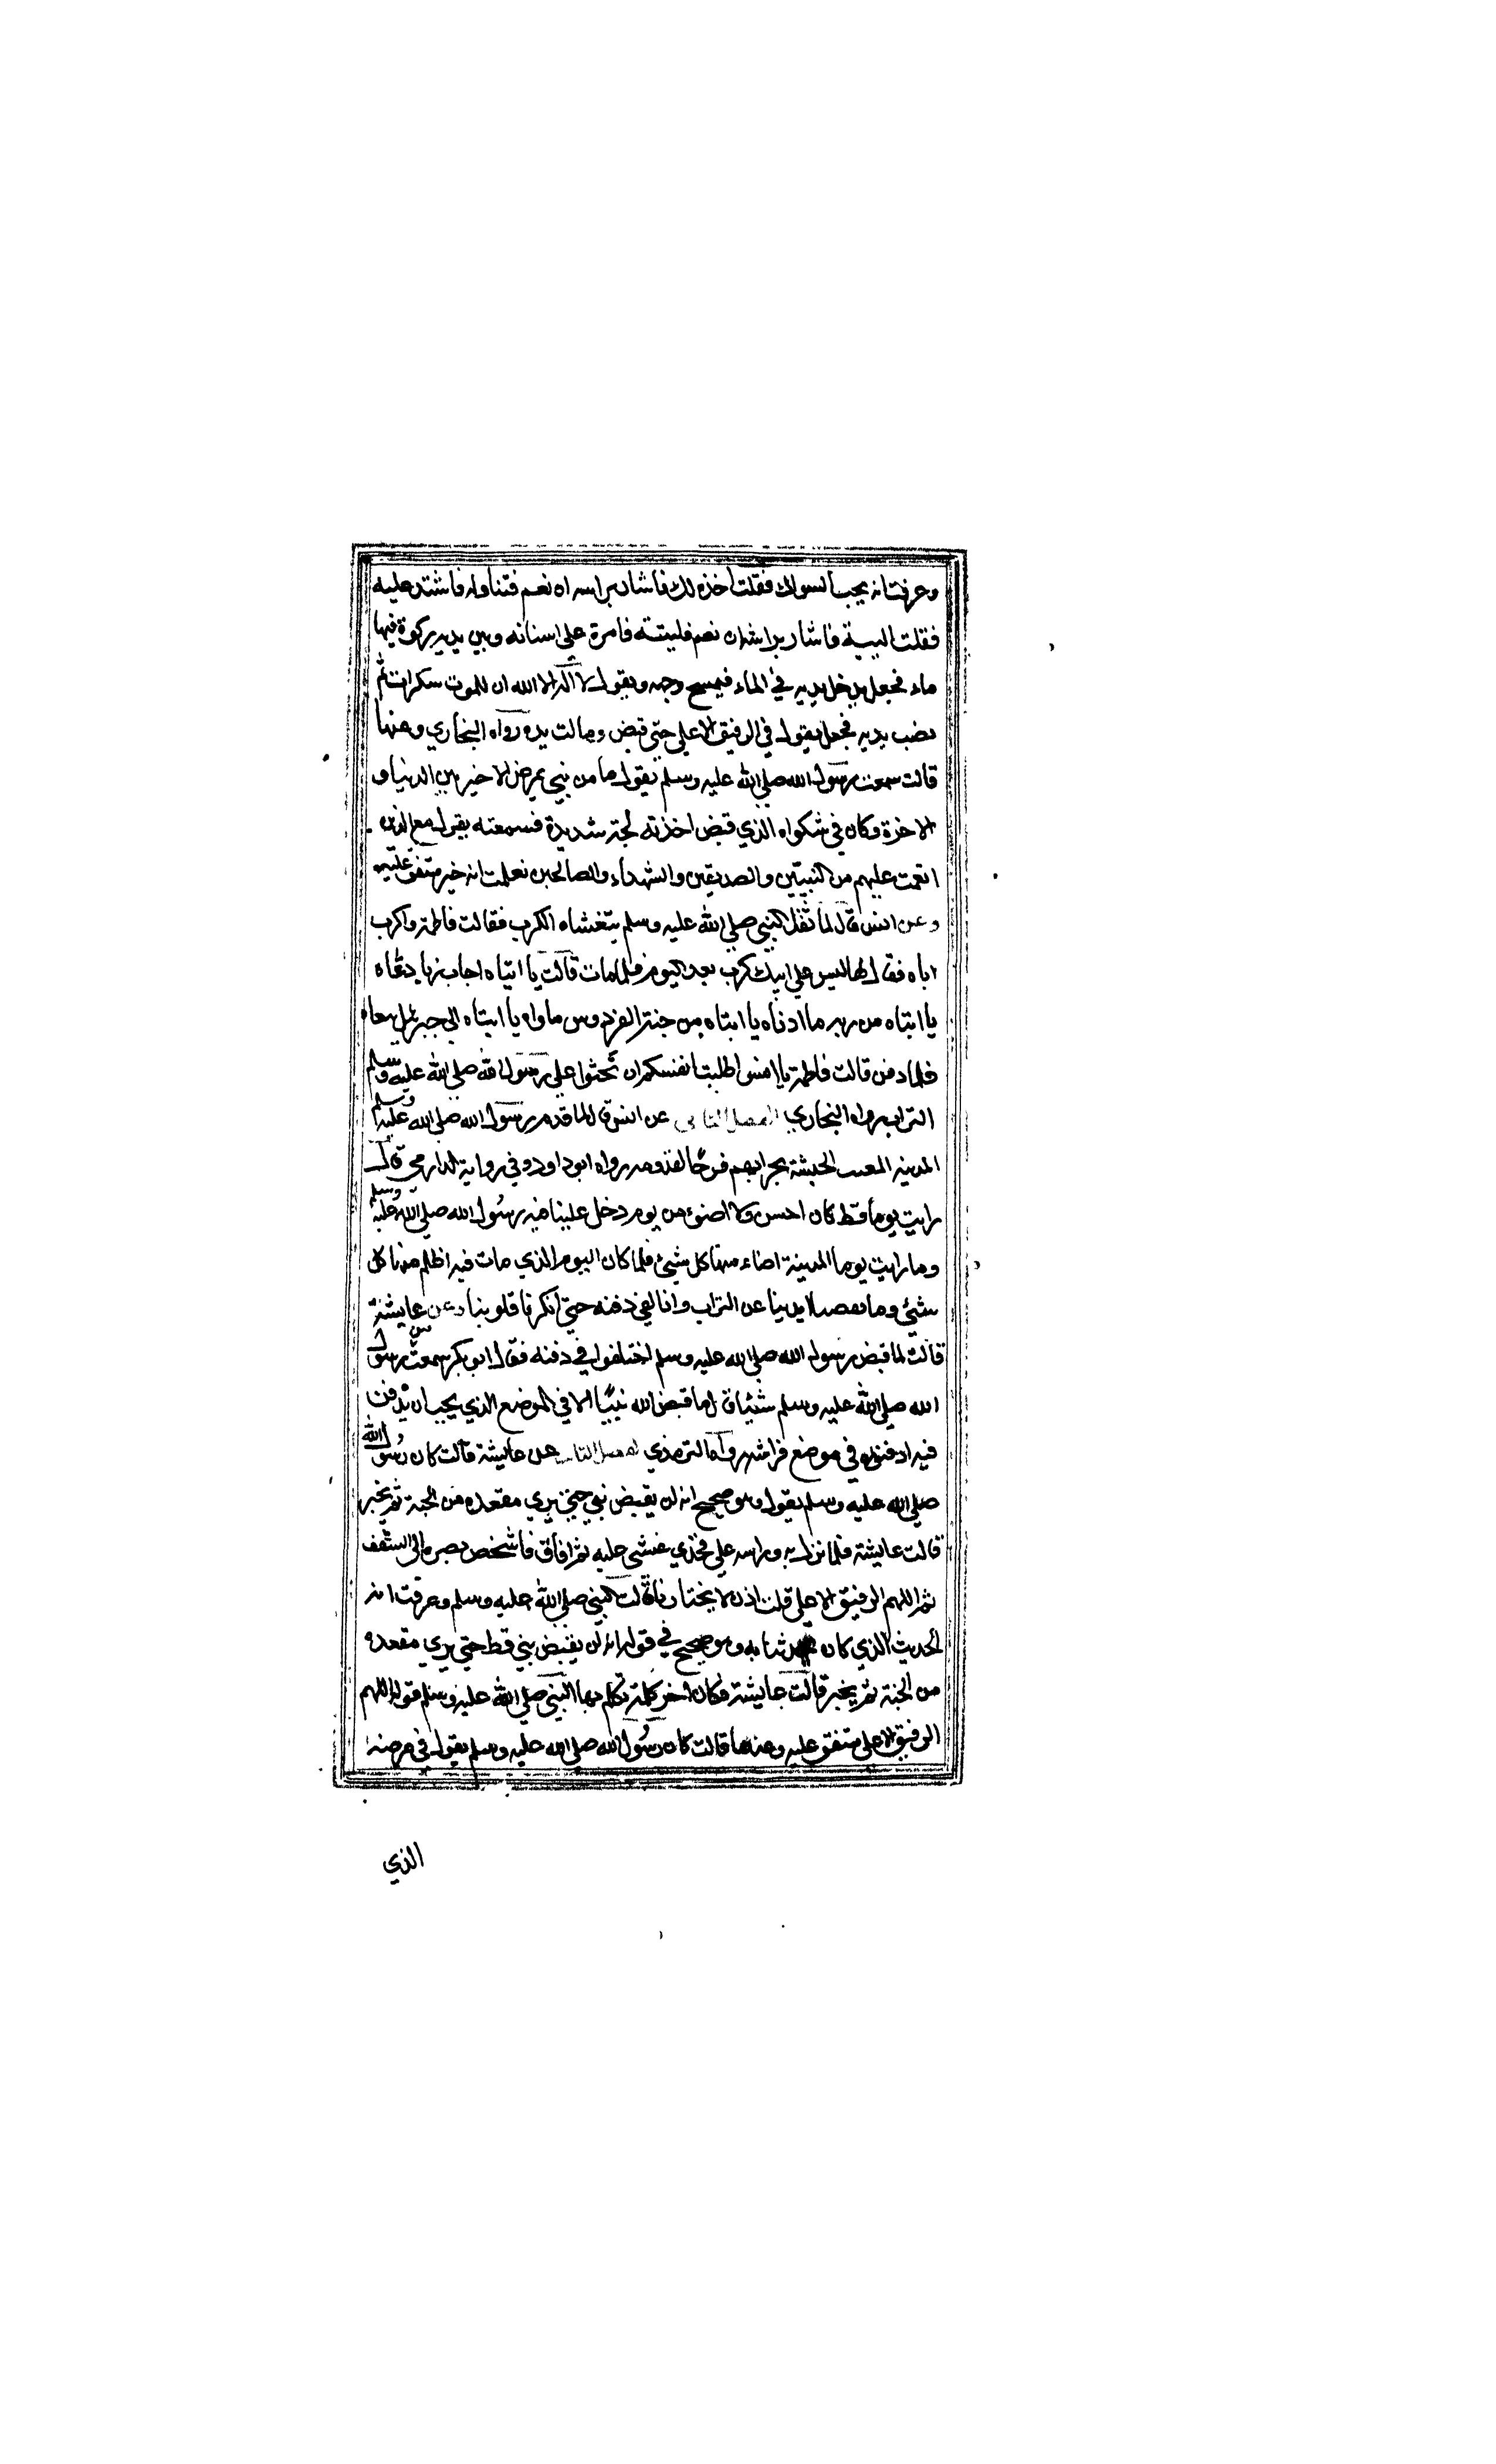 وعرفت انه يحب السواك فقلت اخذه لك فاشار براسه ان نعم فتناولته فاشتد عليه
فقلت الينه فاشار براسه ان نعم فلينته فامره على اسنانه وبين يديه ركوة فيها
ماء فجعل يدخل يديه في الماء فيمسح وجهه ويقول لا اله الا الله ان للموت سكرات ثم
نصب يديه فجعل يقول في الرفيق الاعلي حتى قبض ومالت يده رواه البخاري وعنها
قالت سمعت رسول الله صلي الله عليه وسلم يقول ما من نبي يمرض الا خير بين الدنيا و
الاخرة وكان في شكواه الذي قبض اخذته بحة شديدة فسمعته يقول مع الذين
انعمت عليهم من النبيين والصديقين والشهداء والصالحين فعلمت انه خير متفق عليه
وعن انس قال لما ثقل النبي صلي الله عليه وسلم يتغشاه الكرب فقالت فاطمة واكرب
اباه فقال لها ليس علي ابيك كرب بعد اليوم فلما مات قالت يا ابتاه اجاب ربا دعاه
يا ابتاه من ربه ما ادناه يا ابتاه من جنة الفردوس ماواه يا ابتاه الي جبرئيل ننعاه
فلما دفن قالت فاطمة يا انس اطابت انفسكم ان تحثوا علي رسول الله صلي الله عليه وسلم
التراب رواه البخاري الفصل الثاني عن انس قال لما قدم رسول الله صلي الله عليه وسلم
المدينة لعبت الحبشة بحرابهم فرحا لقدومه رواه ابو داود وفي رواية الدارمي قال
رايت يوما قط كان احسن ولا اضوء من يوم دخل علينا فيه رسول الله صلي الله عليه وسلم
وما رايت يوما المدينة اضاء منها كل شيئ فلما كان اليوم الذي مات فيه اظلم منها كل
شيئ وما نفضنا ايدينا عن التراب وانا لفي دفنه حتي انكرنا قلوبنا وعن عايشة
قالت لما قبض رسول الله صلي الله عليه وسلم اختلفوا في دفنه فقال ابو بكر سمعت من رسول
الله صلي الله عليه وسلم شيئا قال ما قبض الله نبيا الا في الموضع الذي يحب ان يدفن
فيه ادفنوه في موضع فراشه رواه الترمذي الفصل الثالث عن عايشة قالت كان رسول الله
صلي الله عليه وسلم يقول وهو صحيح انه لن يقبض نبي حتي يري مقعده من الجنة ثم يخير
قالت عايشة فلما نزل به وراسه علي فخذي غشي عليه ثم افاق فاشخص بصره الى السقف
ثم اللهم الرفيق الاعلى قلت اذن لا يختارنا قالت النبي صلي الله عليه وسلم وعرفت انه
الحديث الذي كان يحدثنا به وهو صحيح في قوله انه لن يقبض نبي قط حتي يري مقعده
من الجنة ثم يخير قالت عايشة فكان اخر كلمة تكلم بها النبي صلي الله عليه وسلم قوله اللهم
الرفيق الاعلي متفق عليه وعنها قالت كان رسول الله صلي الله عليه وسلم يقول في مرضه
الذي